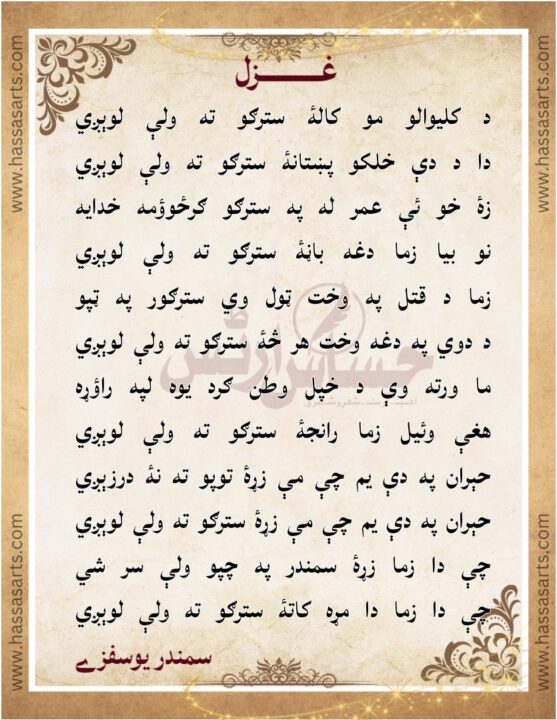 غـــــزل
د کلیوالو مو کالۀ سترګو ته ولې لوېږي
دا د دې خلکو پښتانۀ سترګو ته ولې لوېږي
زۀ خو ئې عمر له په سترګو ګرځوؤمه خدایه
نو بیا زما دغه باڼۀ سترګو ته ولې لوېږي
زما د قتل په وخت ټول وي سترګور په ټپو
د دوي په دغه وخت هر څۀ سترګو ته ولې لوېږي
ما ورته وې د خپل وطن ګرد یوه لپه راؤړه
هغې وئیل زما رانجۀ سترګو ته ولې لوېږي
حېران په دې یم چې مې زړۀ توپو ته نۀ درزېږي
حېران په دې یم چې مې زړۀ سترګو ته ولې لوېږي
چې دا زما زړۀ سمندر په چپو ولې سر شي
چې دا زما دا مړه کاتۀ سترګو ته ولې لوېږي
سمندر یوسفزے
www.hassasarts.com
www.hassasarts.com
www.hassasarts.com
www.hassasarts.com
حساس آرټس